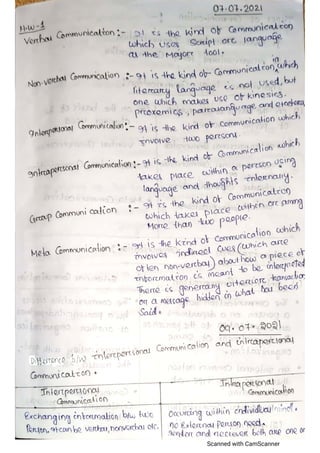 07.07.2021
H.W-1
Verbal Communication :- It is the kind of Communication
which uses Script or language
as the Major tool.
Non-verbal Communication :- It is the kind of Communication in which
literary language is not used, but
one which makes use of kinesics,
proxemics, paralanguage and etcetera.
Interpersonal Communication :- It is the kind of communication which
involve two persons.
Intrapersonal Communication :- It is the kind of Communication which
takes place within a person using
language and thoughts internally.
Group Communication :- It is the kind of Communication
which takes place within or among
More than two people.
Meta Communication :- It is the kind of communication which
involves indirect cues (which are
often non-verbal) about how a piece of
information is meant to be interpreted
There is generally ulterior
or a message hidden in what has been
Said.
09.07.2021
Difference b/w interpersonal Communication and intrapersonal
Communication.
Interpersonal
Communication
Intrapersonal
Communication
Exchanging information b/w two
Person, it can be verbal, nonverbal etc.
Occuring within individual mind.
No External Person need.
Sender and reciever both are one or
Scanned with CamScanner